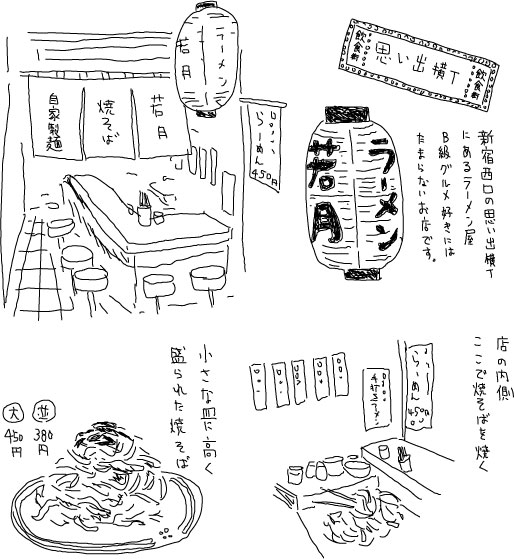 ラーメン
若月
自家製麺
焼そば
若月
らーめん
450円
飲食街
思い出横丁
飲食街
ラーメン
若月
新宿西口の思い出横丁
にあるラーメン屋
B級グルメ好きには
たまらないお店です。
小さな皿に高く
盛られた焼そば
大
450円
並
380円
店の内側
ここで焼そばを焼く
手打ラーメン
らーめん
450円